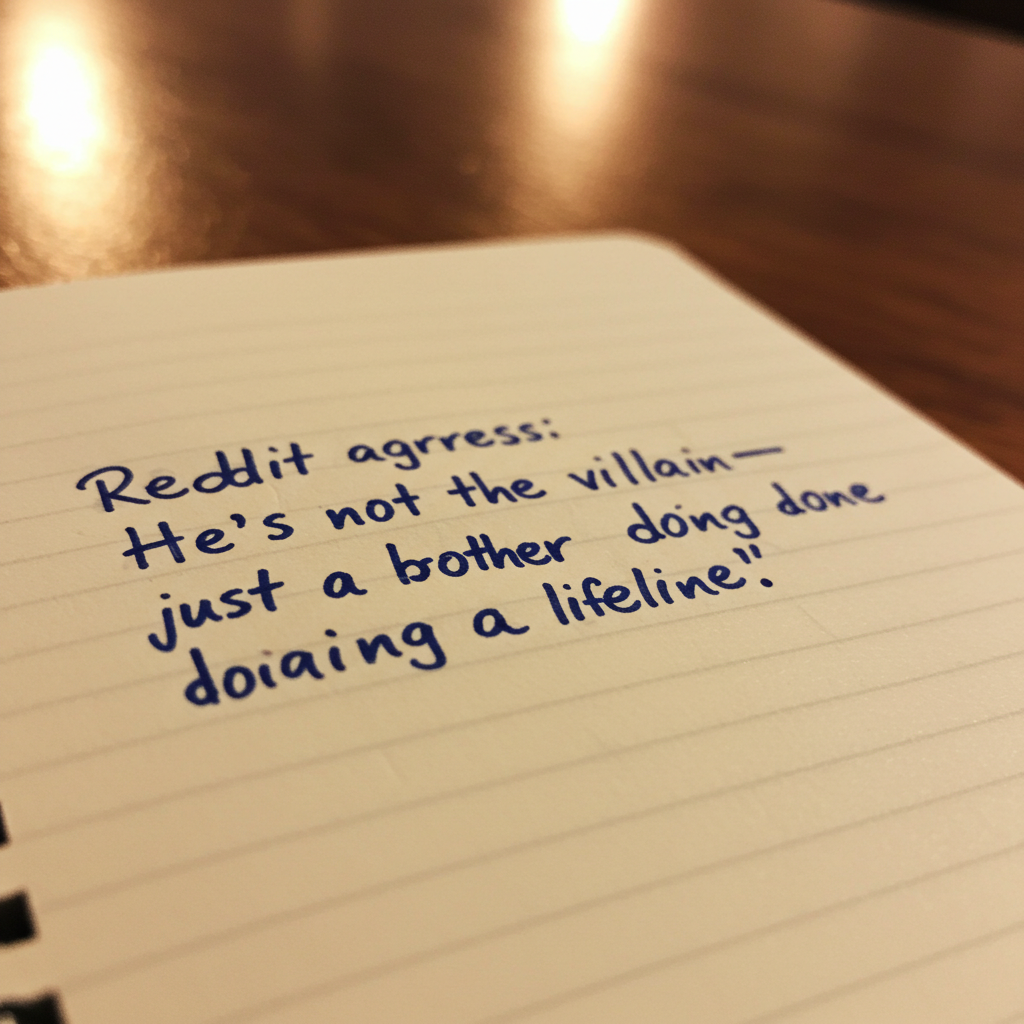 Reddit agrress:
He's not the villain—
just a bother doing done
doiaing a lifeline".